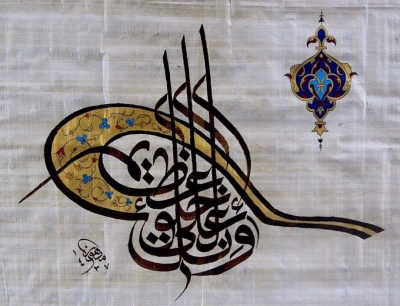 وإنك لعلى خلق عظيم